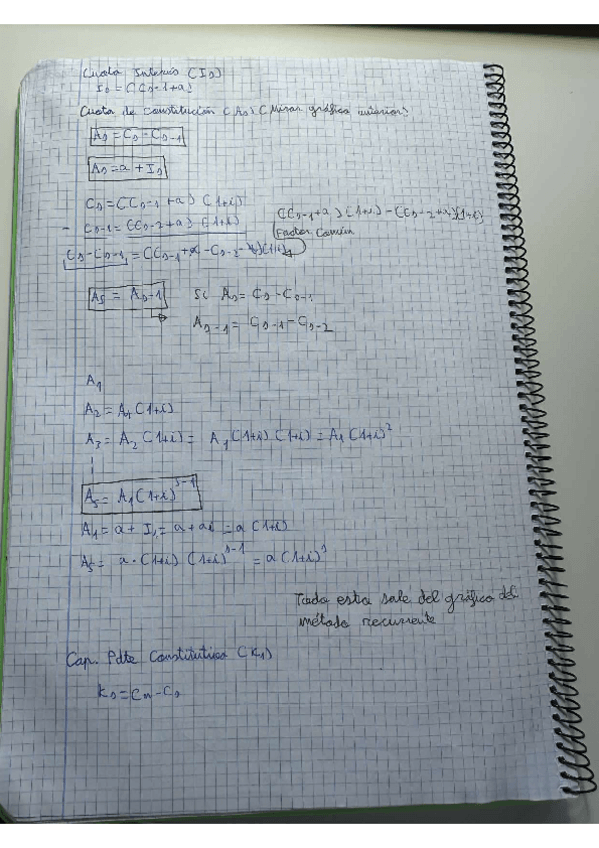 Cuota Interés (Is)
Is = (Cs-1+a)i
Cuota de constitución (As) (Mirar gráfico anterior)
As = Cs - Cs-1
As = a + Is
Cs = (Cs-1 + a) (1+i)
(Cs-1+a) (1+i) - (Cs-2+a)(1+i)
- Cs-1 = (Cs-2+a) (1+i)
Factor Común
Cs - Cs-1 = (Cs-1 + a - Cs-2 - a)(1+i)
As = As-1
Si As = Cs - Cs-1
As-1 = Cs-1 - Cs-2
A1
A2 = A1 (1+i)
A3 = A2 (1+i) = A1 (1+i) (1+i) = A1 (1+i)²
As = A1 (1+i)^s-1
A1 = a + I1 = a + ai = a (1+i)
As = a · (1+i) (1+i)^s-1 = a (1+i)^s
Todo esto sale del gráfico del
método recurrente
Cap. Pdte Constitutivo (Ks)
Ks = Cn - Cs